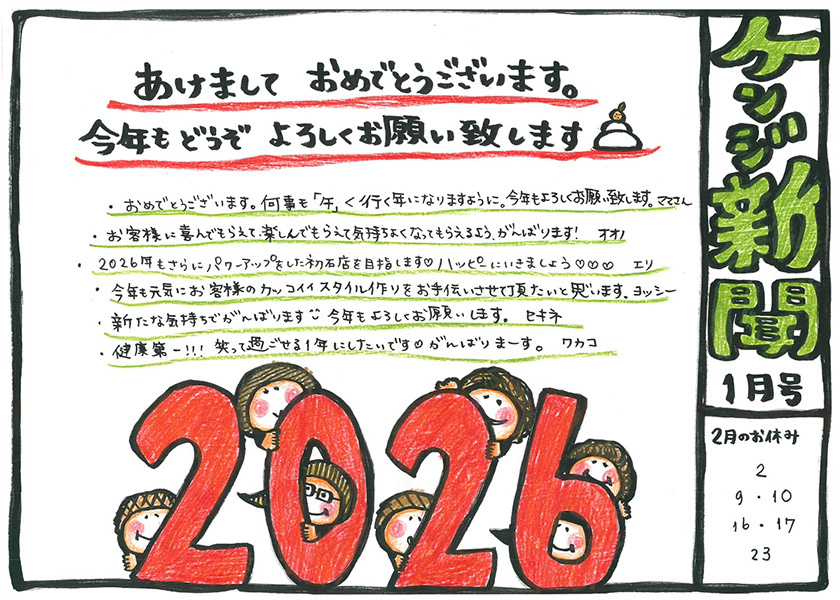 ケンジ新聞
1月号
あけまして おめでとうございます。
今年も どうぞ よろしくお願い致します
・おめでとうございます。何事も「午」く行く年になりますように。今年もよろしくお願い致します。ママさん
・お客様に喜んでもらえて、楽しんでもらえて気持ちよくなってもらえるよう、がんばります! オオノ
・2026年もさらにパワーアップをした初石店を目指します♡ハッピーにいきましょう♡♡♡ エリ
・今年も元気にお客様のカッコイイスタイル作りをお手伝いさせて頂きたいと思います。ヨッシー
・新たな気持ちでがんばります 今年もよろしくお願いします。 セキネ
・健康第一!!! 笑って過ごせる1年にしたいです♡がんばりまーす。 ワカコ
2026
2月のお休み
2
9・10
16・17
23